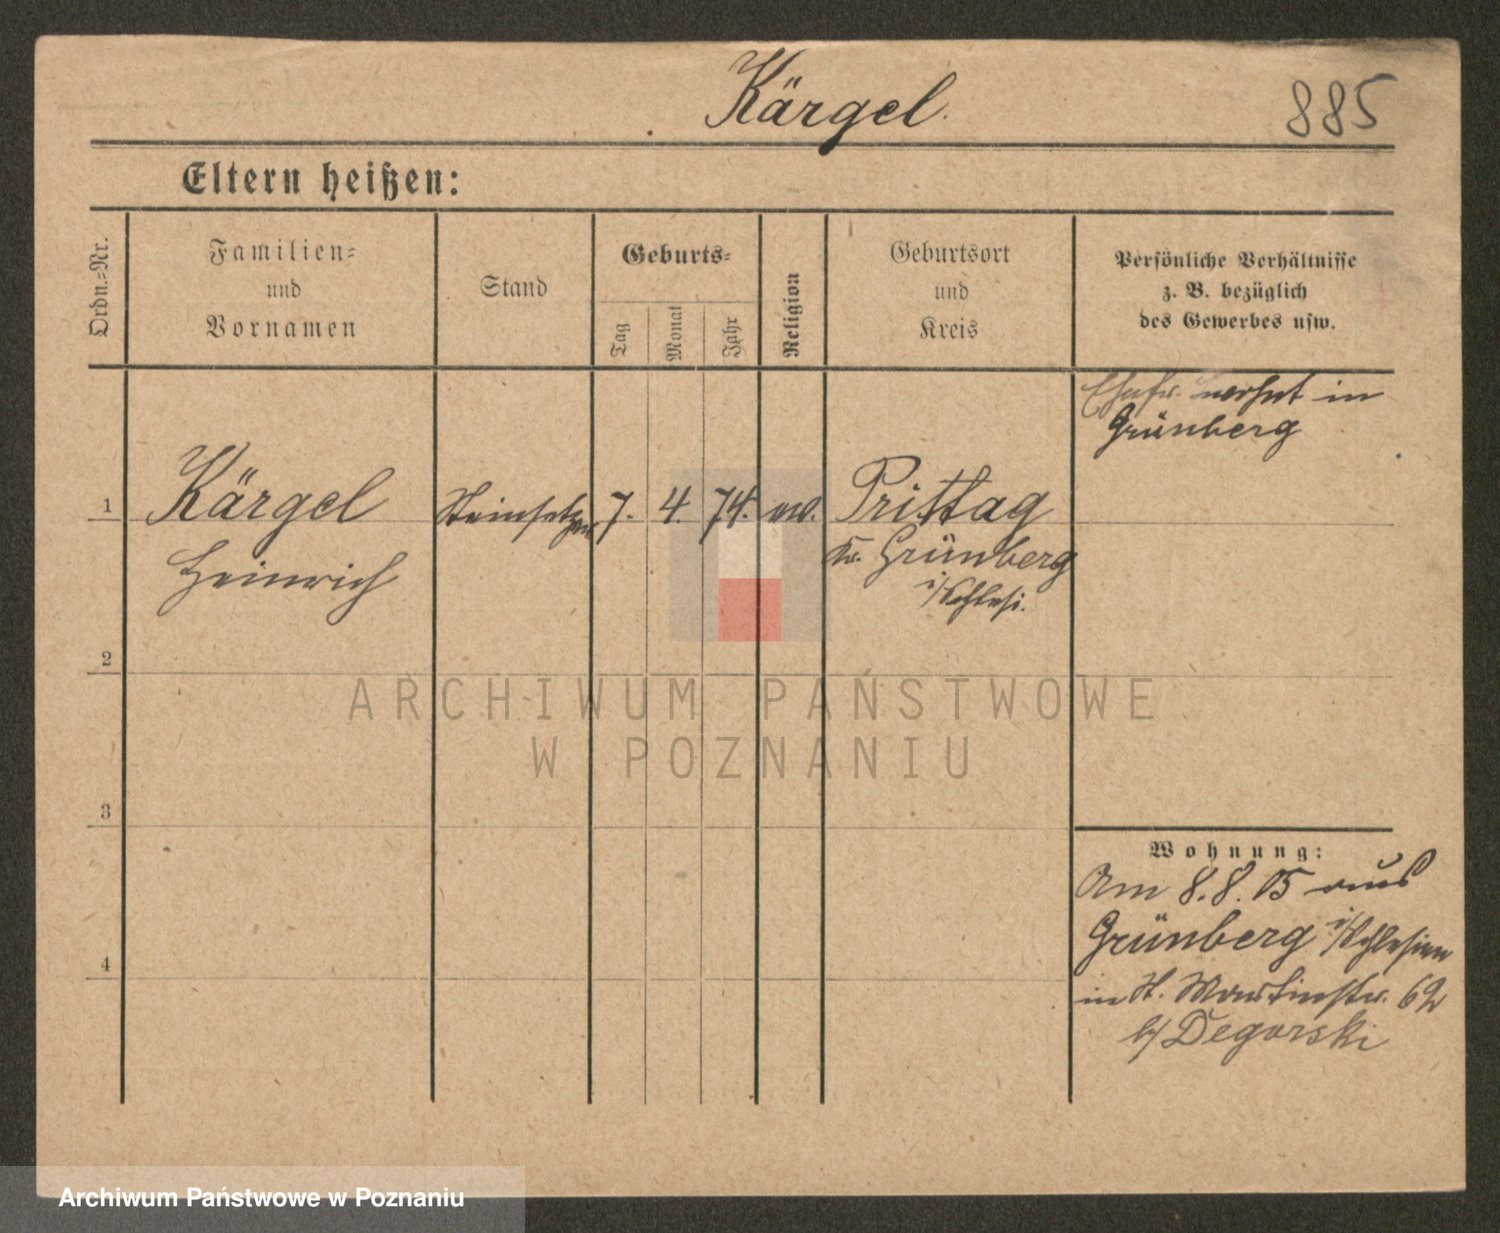 Kärgel.
885
Eltern heißen:
Ordn.=Nr.
Familien=
und
Vornamen
Stand
Geburts=
Tag
Monat
Jahr
Religion
Geburtsort
und
Kreis
Persönliche Verhältnisse
z. B. bezüglich
des Gewerbes usw.
Ehefr. wohnt in
Grünberg
1
Kärgel
Heinrich
Steinsetzer
7.
4.
74.
ev.
Prittag
Kr. Grünberg
i/Schlesi.
2
3
4
Wohnung:
Am 8.8.05 aus
Grünberg i/Schlesien
in St. Martinstr. 62
b/ Degorski
ARCHIWUM PAŃSTWOWE
W POZNANIU
Archiwum Państwowe w Poznaniu